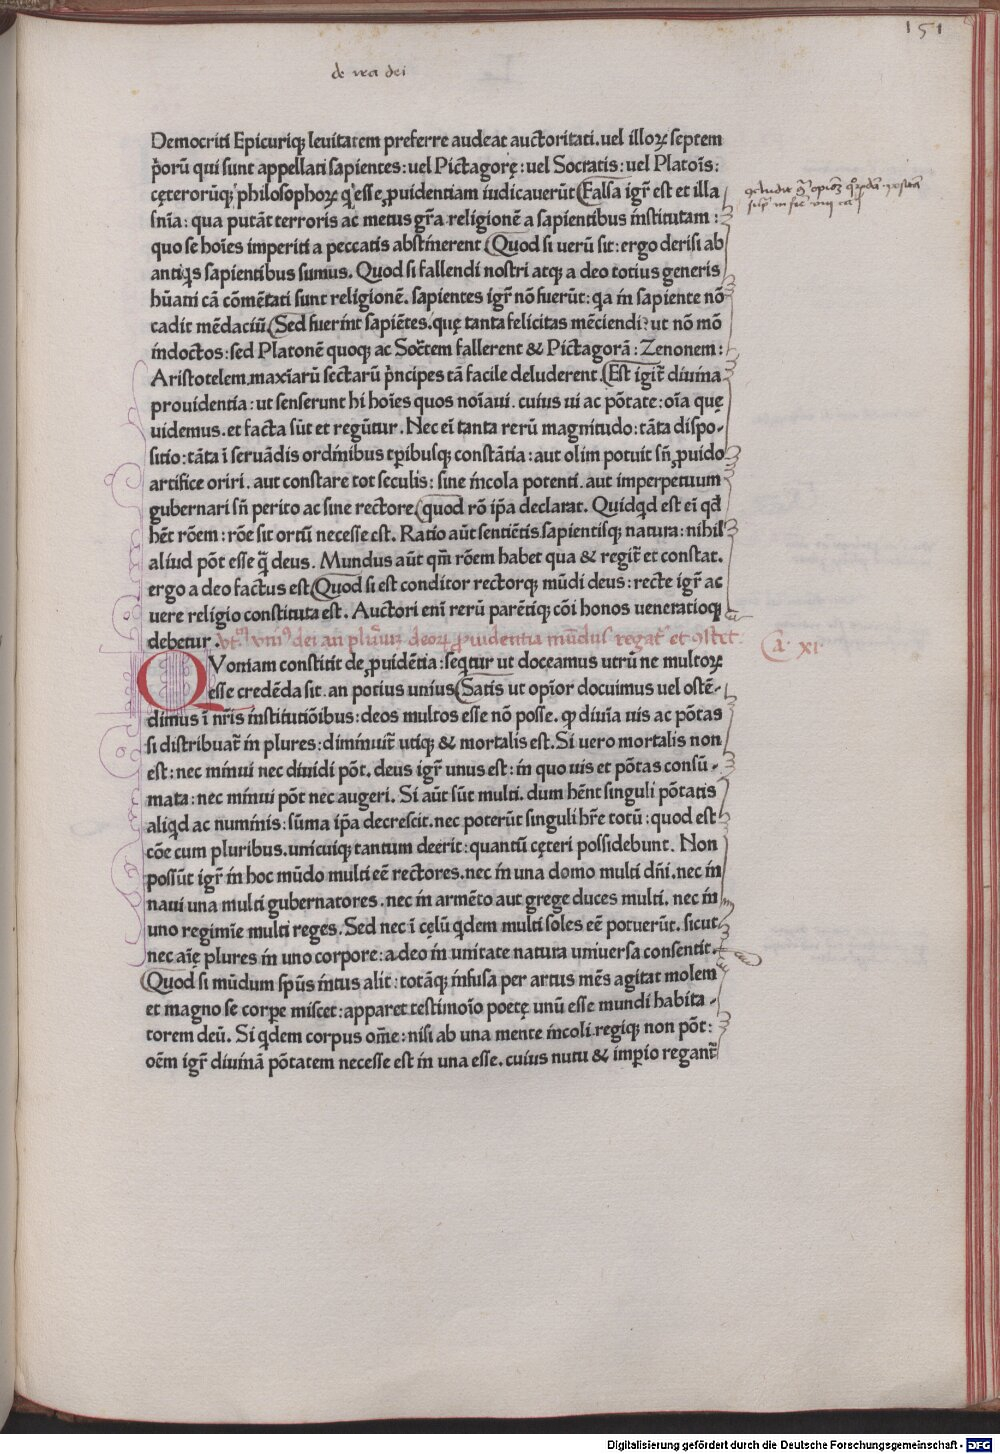 151
de ira dei
Democriti Epicuriq; leuitatem preferre audeat auctoritati. uel illoꝝ septem
p̍orū qui sunt appellati sapientes: uel Pictagorę: uel Socratis: uel Platoīs:
cęterorūq; philosophoꝝ q̍ esse ꝓuidentiam iudicauerūt (Falsa igr̄ est et illa
snīa: qua putāt terroris ac metus gr̄a religionē a sapientibus institutam:
quo se hoīes imperiti a peccatis abstinerent (Quod si uerū sit: ergo derisi ab
antiq̍s sapientibus sumus. Quod si fallendi nostri atq; a deo totius generis
hūani cā cōmētati sunt religionē. sapientes igr̄ nō fuerūt: qa in sapiente nō
cadit mēdaciū. (Sed fuerint sapiētes. quę tanta felicitas mēciendi: ut nō mō
indoctos: sed Platonē quoq; ac Socr̄tem fallerent & Pictagorā: Zenonem:
Aristotelem. maxīarū sectarū p̍ncipes tā facile deluderent. (Est igit̄ diuina
prouidentia: ut senserunt hi hoīes quos noīaui. cuius ui ac pōtate: oīa quę
uidemus. et facta sūt et regūtur. Nec eī tanta rerū magnitudo: tāta dispo-
sitio: tāta ī seruādis ordinibus tꝑibusq; constātia: aut olim potuit sn̄ ꝓuido
artifice oriri. aut constare tot seculis: sine incola potenti. aut imperpetuum
gubernari sn̄ perito ac sine rectore. (quod rō ip̄a declarat. Quidqd est eī qd̄
hēt rōem: rōe sit ortū necesse est. Ratio aūt sentiētis sapientisq; natura: nihil
aliud pōt esse q̄ deus. Mundus aūt qm̄ rōem habet qua & regit̄ et constat.
ergo a deo factus est (Quod si est conditor rectorq; mūdi deus: recte igr̄ ac
uere religio constituta est. Auctori enī rerū parētiq; cōi honos ueneratioq;
debetur. ut̄ vniꝰ dei an pluriuꝫ deoꝝ ꝓuidentia mūdus regat̄ et ꝯstet. Ca. XI.
QVoniam constitit de ꝓuidētia: seq̍tur ut doceamus utrū ne multoꝝ
esse credēda sit. an potius unius (Satis ut opīor docuimus uel ostē-
dimus ī nr̄is institutiōibus: deos multos esse nō posse. ꝙ diuīa uis ac pōtas
si distribuat̄ in plures: diminuit̄ utiq; & mortalis est. Si uero mortalis non
est: nec minui nec diuidi pōt. deus igr̄ unus est: in quo uis et pōtas consū-
mata: nec minui pōt nec augeri. Si aūt sūt multi. dum hēnt singuli pōtatis
aliq̍d ac numinis: sūma ip̄a decrescit. nec poterūt singuli hr̄e totū: quod est
cōe cum pluribus. unicuiq; tantum deerit: quantū cęteri possidebunt. Non
possūt igr̄ in hoc mūdo multi eē rectores. nec in una domo multi dn̄i. nec in
naui una multi gubernatores. nec in armēto aut grege duces multi. nec in
uno regimīe multi reges. Sed nec ī cęlū q̍dem multi soles eē potuerūt. sicut
nec aīę plures in uno corpore: adeo in unitate natura uniuersa consentit.
(Quod si mūdum spūs intus alit: totāq; infusa per artus mēs agitat molem
et magno se corꝑe miscet: apparet testimoīo poetę unū esse mundi habita-
torem deū. Si q̍dem corpus om̄e: nisi ab una mente incoli regiq; non pōt:
oēm igr̄ diuinā pōtatem necesse est in una esse. cuius nutu & imꝑio regant̄
Digitalisierung gefördert durch die Deutsche Forschungsgemeinschaft - DFG